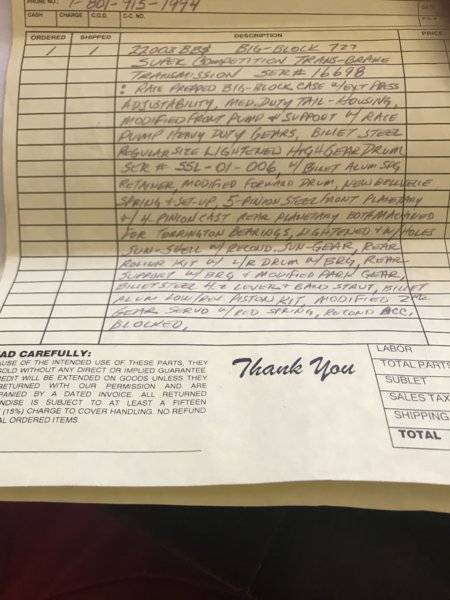 PHONE NO.: 1-801-915-1944
CASH CHARGE C.O.D. C-C. NO.
ORDERED SHIPPED DESCRIPTION PRICE
1 1 22003BBS BIG-BLOCK 727
SUPER COMPETITION TRANS-BRAKE
TRANSMISSION SER#16698
: RACE PREPPED BIG-BLOCK CASE W/EXT PRESS
ADJUSTABILITY, MED. DUTY TAIL-HOUSING,
MODIFIED FRONT PUMP & SUPPORT W/RACE
PUMP HEAVY DUTY GEARS, BILLET STEEL
REGULAR SIZE LIGHTENED HIGH GEAR DRUM
SER # SSL-01-006, W/BILLET ALUM SPG
RETAINER, MODIFIED FORWARD DRUM, NEW BELLVELLE
SPRING & SET-UP, 5-PINION STEEL FRONT PLANETARY
& 4-PINION CAST REAR PLANETARY BOTH MACHINED
FOR TORRINGTON BEARINGS, LIGHTENED W/HOLES
SUN-SHELL W/RECOND. SUN-GEAR, REAR
ROLLER KIT W/ L/R DRUM W/BRG, REAR
SUPPORT W/BRG & MODIFIED PARK GEAR,
BILLET STEEL 4.2 LEVER & BAND STRUT, BILLET
ALUM LOW/REV PISTON KIT, MODIFIED 2ND
GEAR SERVO W/RED SPRING, RECOND ACC.
BLOCKED,
AD CAREFULLY:
AUSE OF THE INTENDED USE OF THESE PARTS, THEY
SOLD WITHOUT ANY DIRECT OR IMPLIED GUARANTEE.
EDIT WILL BE EXTENDED ON GOODS UNLESS THEY
RETURNED WITH OUR PERMISSION AND ARE
PANIED BY A DATED INVOICE. ALL RETURNED
NDISE IS SUBJECT TO AT LEAST A FIFTEEN
(15%) CHARGE TO COVER HANDLING. NO REFUND
AL ORDERED ITEMS.
Thank You
LABOR
TOTAL PARTS
SUBLET
SALES TAX
SHIPPING
TOTAL